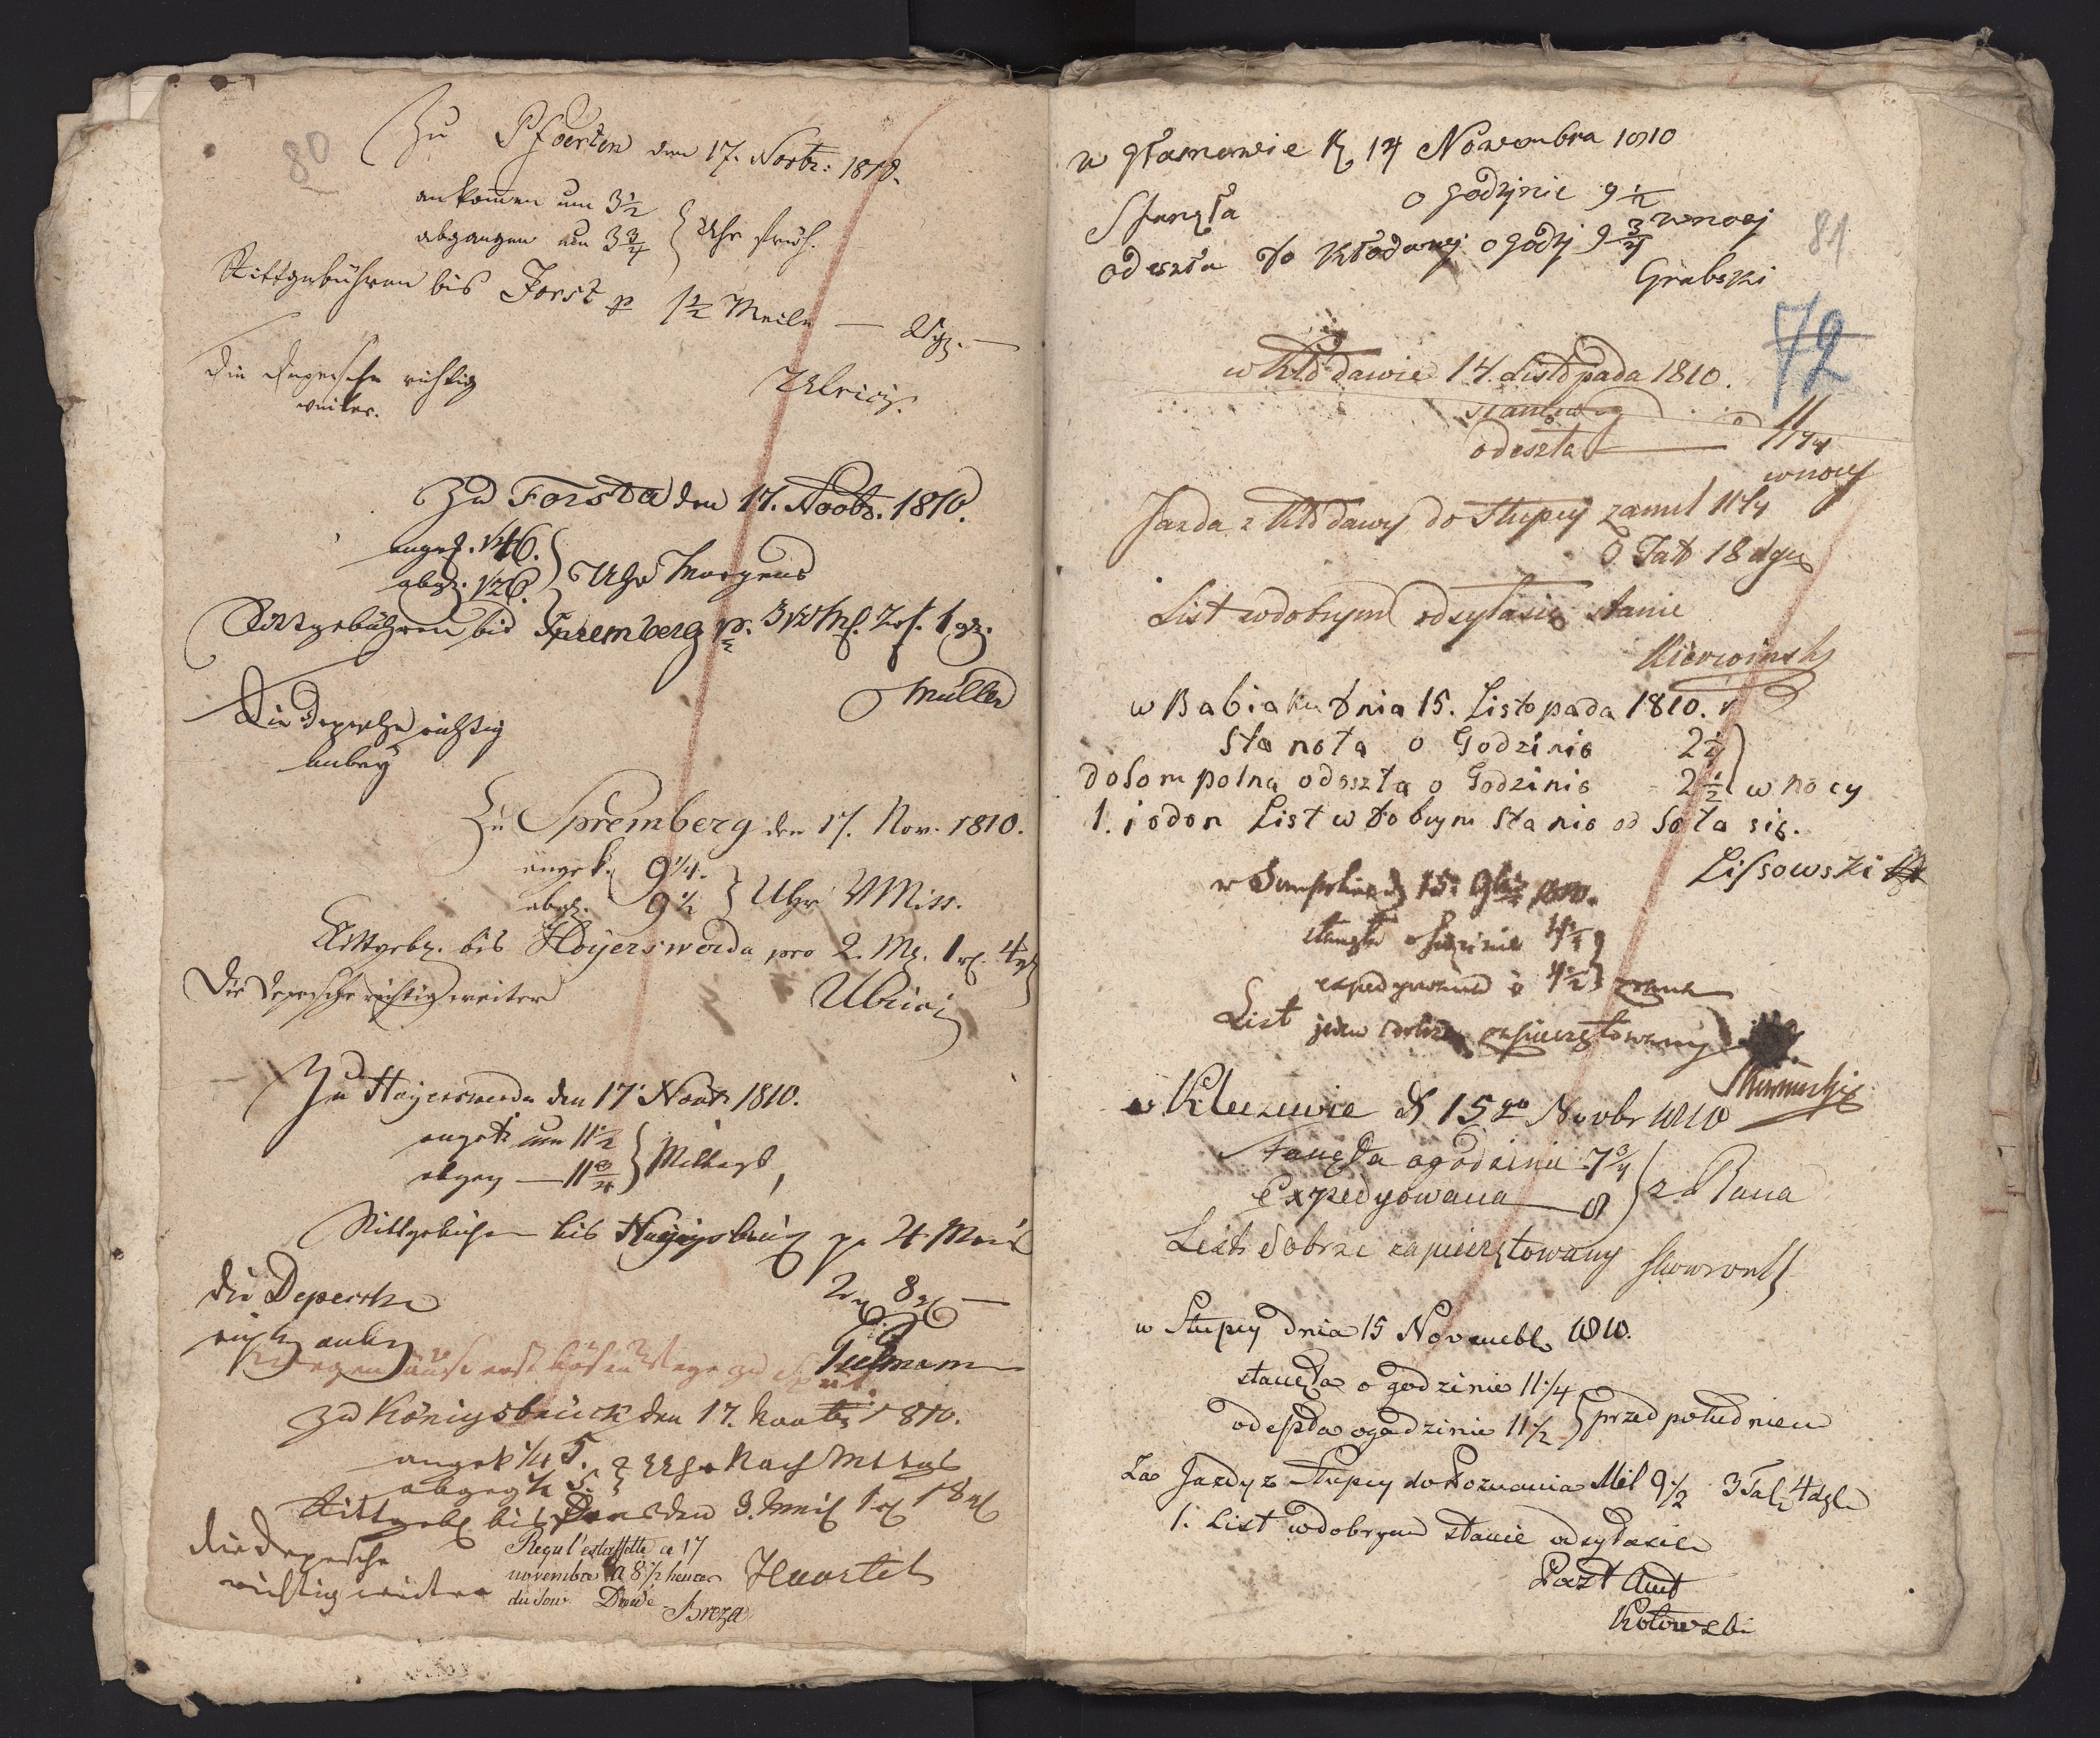 80
Zu Pfoerten den 17. Novbr: 1810.
ankommen um 3½
abgangen um 3¾ } Uhr früh.
Rittgebühren bis Forst p 1½ Meile —
Die Depesche richtig
weiter.
Ulrici.
Zu Forsta den 17. Novbr. 1810.
angek. ¼6.
abg. ½6. } Uhr Morgens
Rittgebühren bis Spremberg p. 3½ Ml. 2 rf. 1 gr.
Müller
Die Depesche richtig
anbey
Zu Spremberg den 17. Nov. 1810.
angek. 9¼.
abg. 9½ } Uhr VMitt.
Rittgeb. bis Hoyerswerda pro 2. Ml. 1 rf. 4 gr
Die Depesche richtig weiter
Ulrici
Zu Hoyerswerda den 17' Novbr 1810.
angek um 11½
abgeg — 11¾ } Mittags,
Rittgebühren bis Königsbrück p 4 Meil
2 rf 8 gr —
die Depesche
richtig anbey
Tielmann
wegen äuserst bösen Wege
Zu Königsbrück den 17. Novbr 1810.
angek ¼ 5.
abgeg ½ 5. } Uhr Nach Mittag
Rittgeb bis Dresden 3. Meil 1 rf 18 gr
die Depesche
richtig weiter
Reçu l'estaffette ce 17
novembre a 8½ heures
du soir. Dresde
Breza
w Kłodawie 14 Novembra 1810
Stanęła o godzinie 9½
odeszła do Kłodawy o godz 9¾ wnocy
Grabski
81
72
w Kłodawie 14. Listopada 1810.
stanęła 11
odeszła — 11¼
wnocy
Jazda z Kłodawy do Słupcy zamil 11¼
Tal 18 dgr
List wdobrym odsyła się stanie
w Babiaku Dnia 15. Listopada 1810. r
Staneła o Godzinie 2¼
do Sompolna odeszła o Godzinie 2½ } w nocy
1. jeden List w Dobrym Stanie od Seła się.
Lissowski
w Sompolnie d 15. 9bra 1810.
stanęła o godzinie 4¼
expedyowana o 4½ } zrana
List jeden dobrze zapieczętowany
w Kleczewie d 15go Novbr 1810
Stanęła o godzinie 7¾
Expedyowana — 8 } z Rana
List dobrze zapieczętowany
w Słupcy dnia 15 Novembr 1810.
stanęła o godzinie 11¼
odeszła o godzinie 11½ } przed południem
Za Jazdy z Słupcy do Poznania Mil 9½ 3 Tal 4 dgr
1. List wdobrym stanie odsyła się
Post Amt
Kotowski